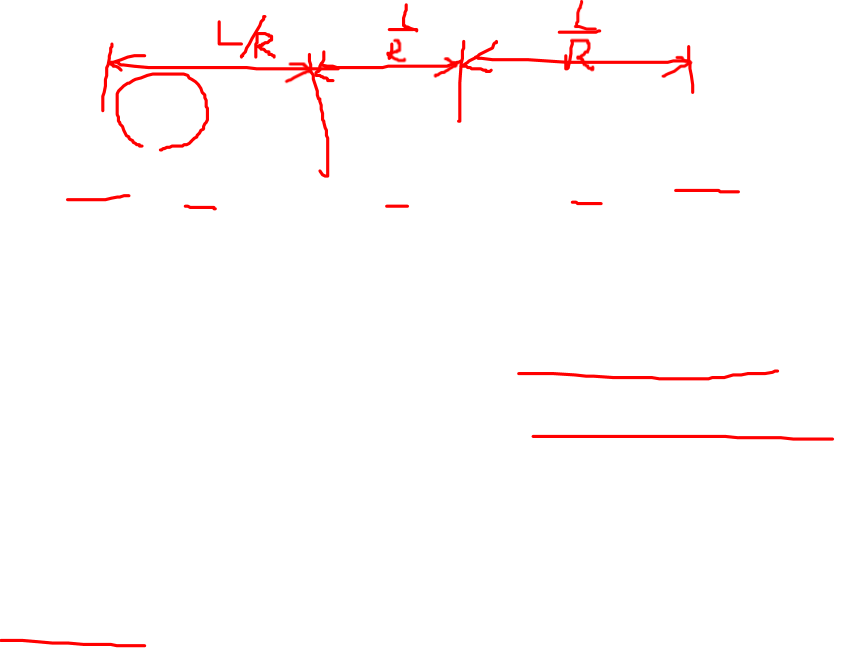 L/R L/R L/R